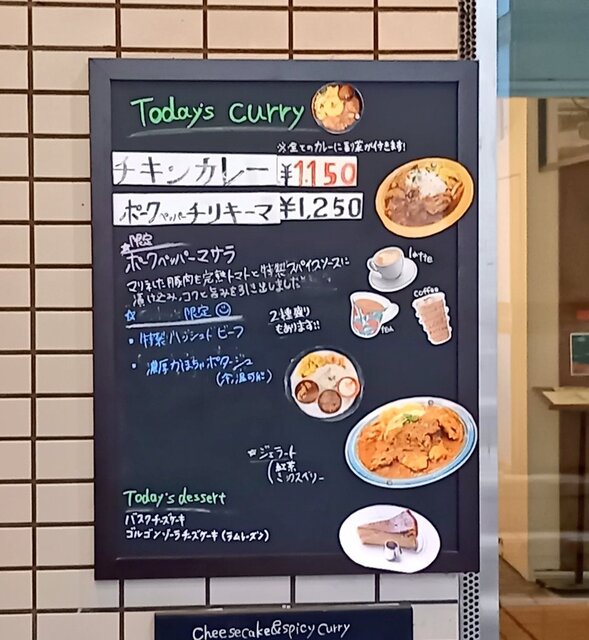 Today's curry
※全てのカレーに副菜が付きます!
チキンカレー ¥1150
ポークペッパーチリキーマ ¥1,250
☆限定
ポークペッパーマサラ
マリネした豚肉を完熟トマトと特製スパイスソースに
漬け込み、コクと旨みを引き出しました
latte
coffee
TEA
☆ 限定
2種盛り
もあります!!
・特製ハッシュドビーフ
・濃厚かぼちゃポタージュ
(冷温可)
☆ジェラート
紅茶
ベリー
Today's dessert
バスクチーズケーキ
ゴルゴンゾーラチーズケーキ(ラムレーズン)
Cheesecake&spicy curry